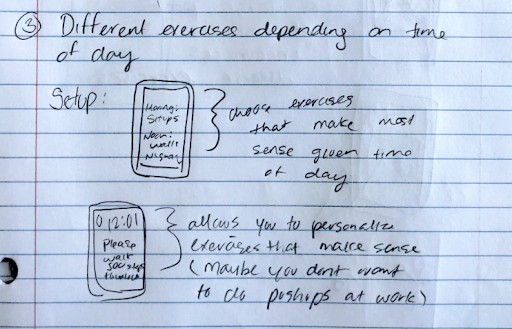 ③ Different exercises depending on time
of day
Setup:
Morning:
Situps
Noon:
Walk
Night:
choose exercises
that make most
sense given time
of day
0 12:01
Please
walk
to unlock
allows you to personalize
exercises that make sense
(maybe you dont want
to do pushups at work)